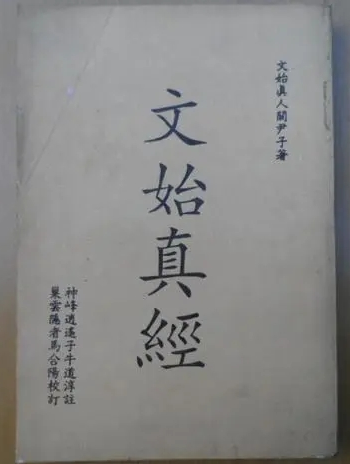 文始真人關尹子著
文始真經
神峰逍遙子牛道淳註
巢雲隱者馬合陽校訂